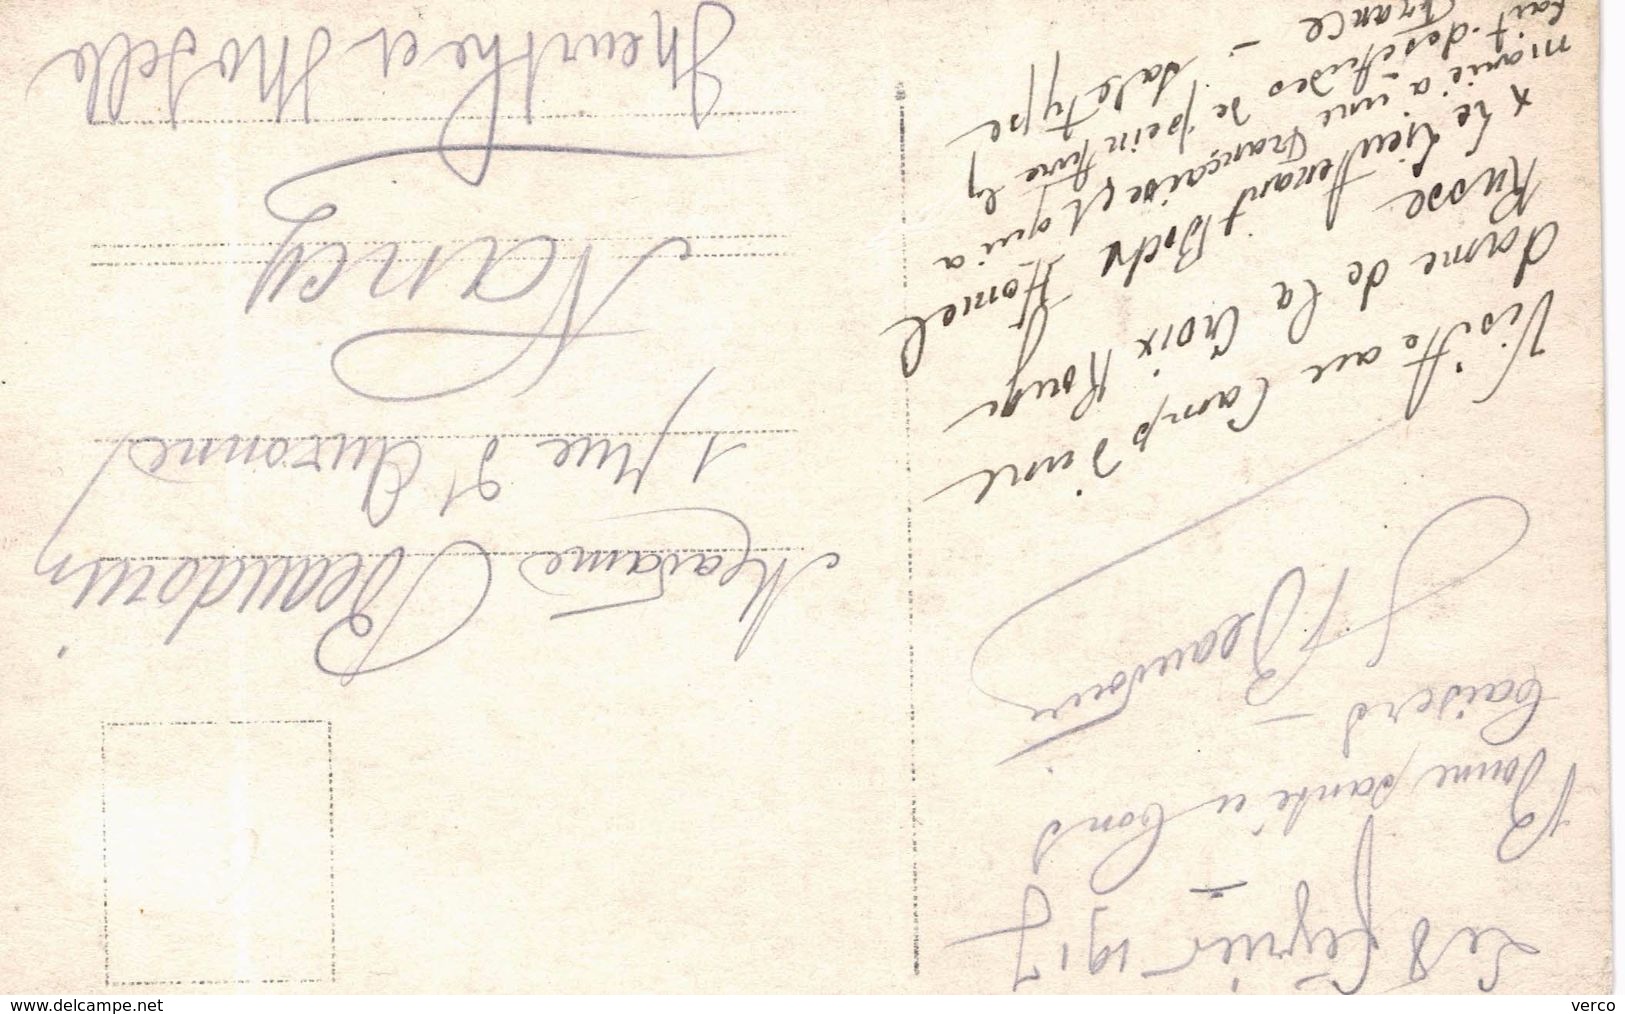 Le 8 Février 1917
Bonne santé et bons
baisers -
Beaudouin
Visitte au Camp d'une
dame de la Croix Rouge
Russe
x Le Lieutenant Boche Homel
marié a une Française et qui a
fait des études de peinture en
France - sale type
Madame Beaudouin
1, rue d'Auxonne
Nancy
Meurthe et Moselle
www.delcampe.net
verco